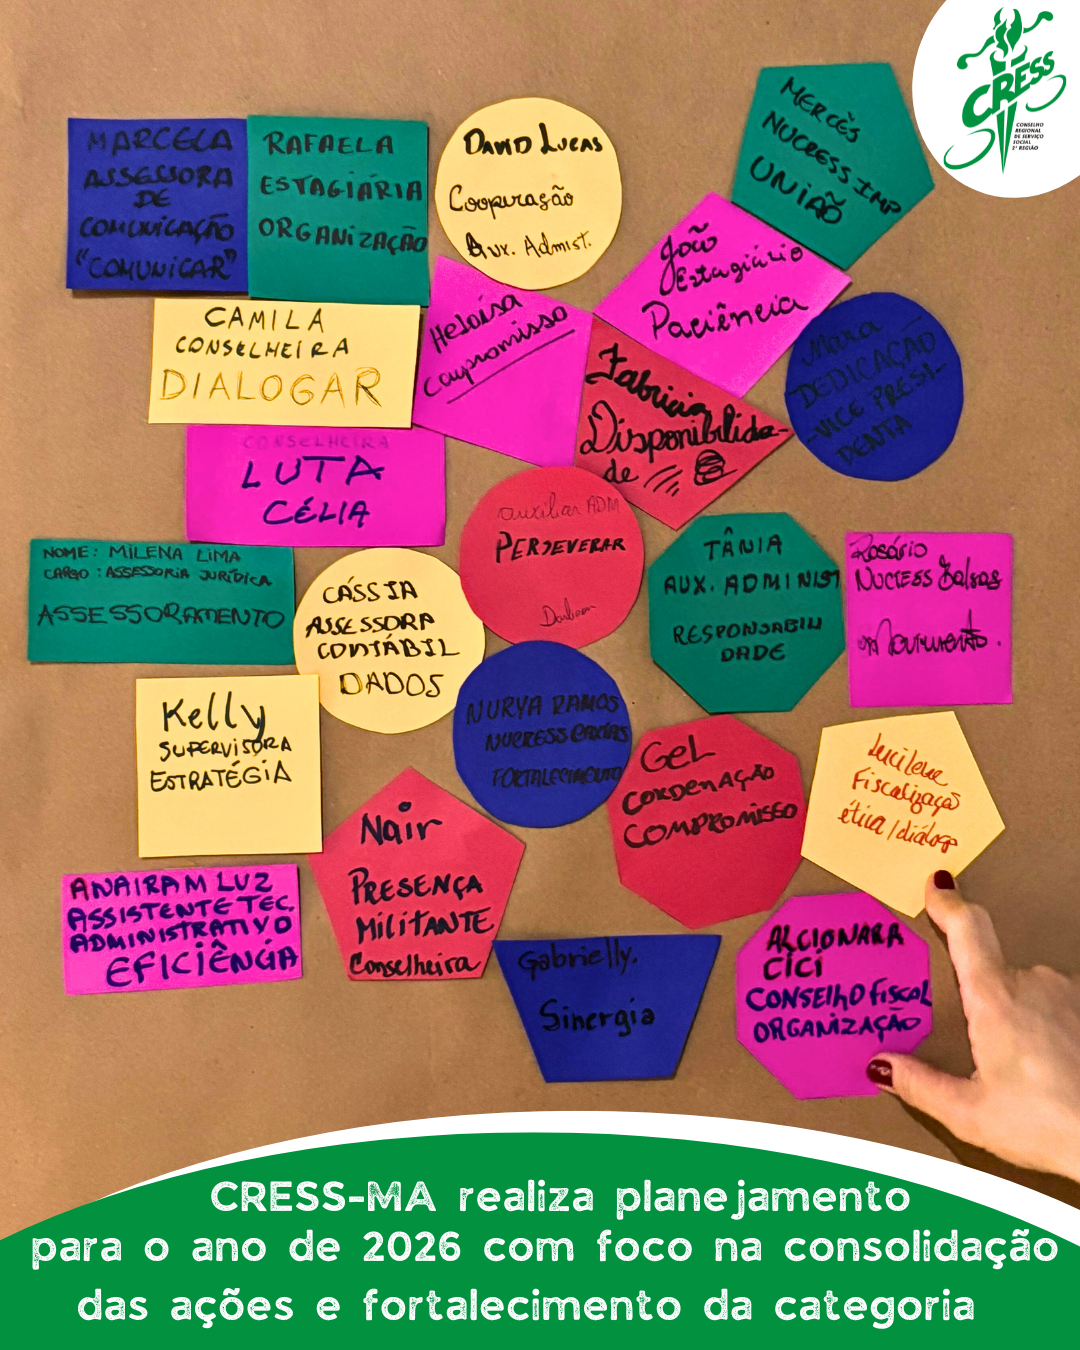 CRESS
CONSELHO
REGIONAL
DE SERVIÇO
SOCIAL
2ª REGIÃO
MARCELA
ASSESSORA
DE
COMUNICAÇÃO
"COMUNICAR"
RAFAELA
ESTAGIÁRIA
ORGANIZAÇÃO
DAVID LUCAS
Cooperação
Aux. Admist.
MERCÊS
NUCRESS IMP
UNIÃO
João
Estagiário
Paciência
Heloísa
Compromisso
CAMILA
CONSELHEIRA
DIALOGAR
Fabricia
Disponibilida-
de
Mara
DEDICAÇÃO
-VICE PRESI-
DENTA
CONSELHEIRA
LUTA
CÉLIA
auxiliar ADM
PERSEVERAR
TÂNIA
AUX. ADMINIST
RESPONSABILI
DADE
Rosário
NUCRESS Balsas
movimento.
NOME: MILENA LIMA
CARGO: ASSESSORIA JURÍDICA
ASSESSORAMENTO
CÁSSIA
ASSESSORA
CONTÁBIL
DADOS
NURYA RAMOS
NUCRESS CAXIAS
FORTALECIMENTO
Kelly
SUPERVISORA
ESTRATÉGIA
GEL
CORDENAÇÃO
COMPROMISSO
Lucilene
Fiscalização
ética/diálogo
Nair
PRESENÇA
MILITANTE
Conselheira
ANAIRAM LUZ
ASSISTENTE TEC.
ADMINISTRATIVO
EFICIÊNCIA
Gabrielly.
Sinergia
ALCIONARA
CICI
CONSELHO FISCAL
ORGANIZAÇÃO
CRESS-MA realiza planejamento
para o ano de 2026 com foco na consolidação
das ações e fortalecimento da categoria